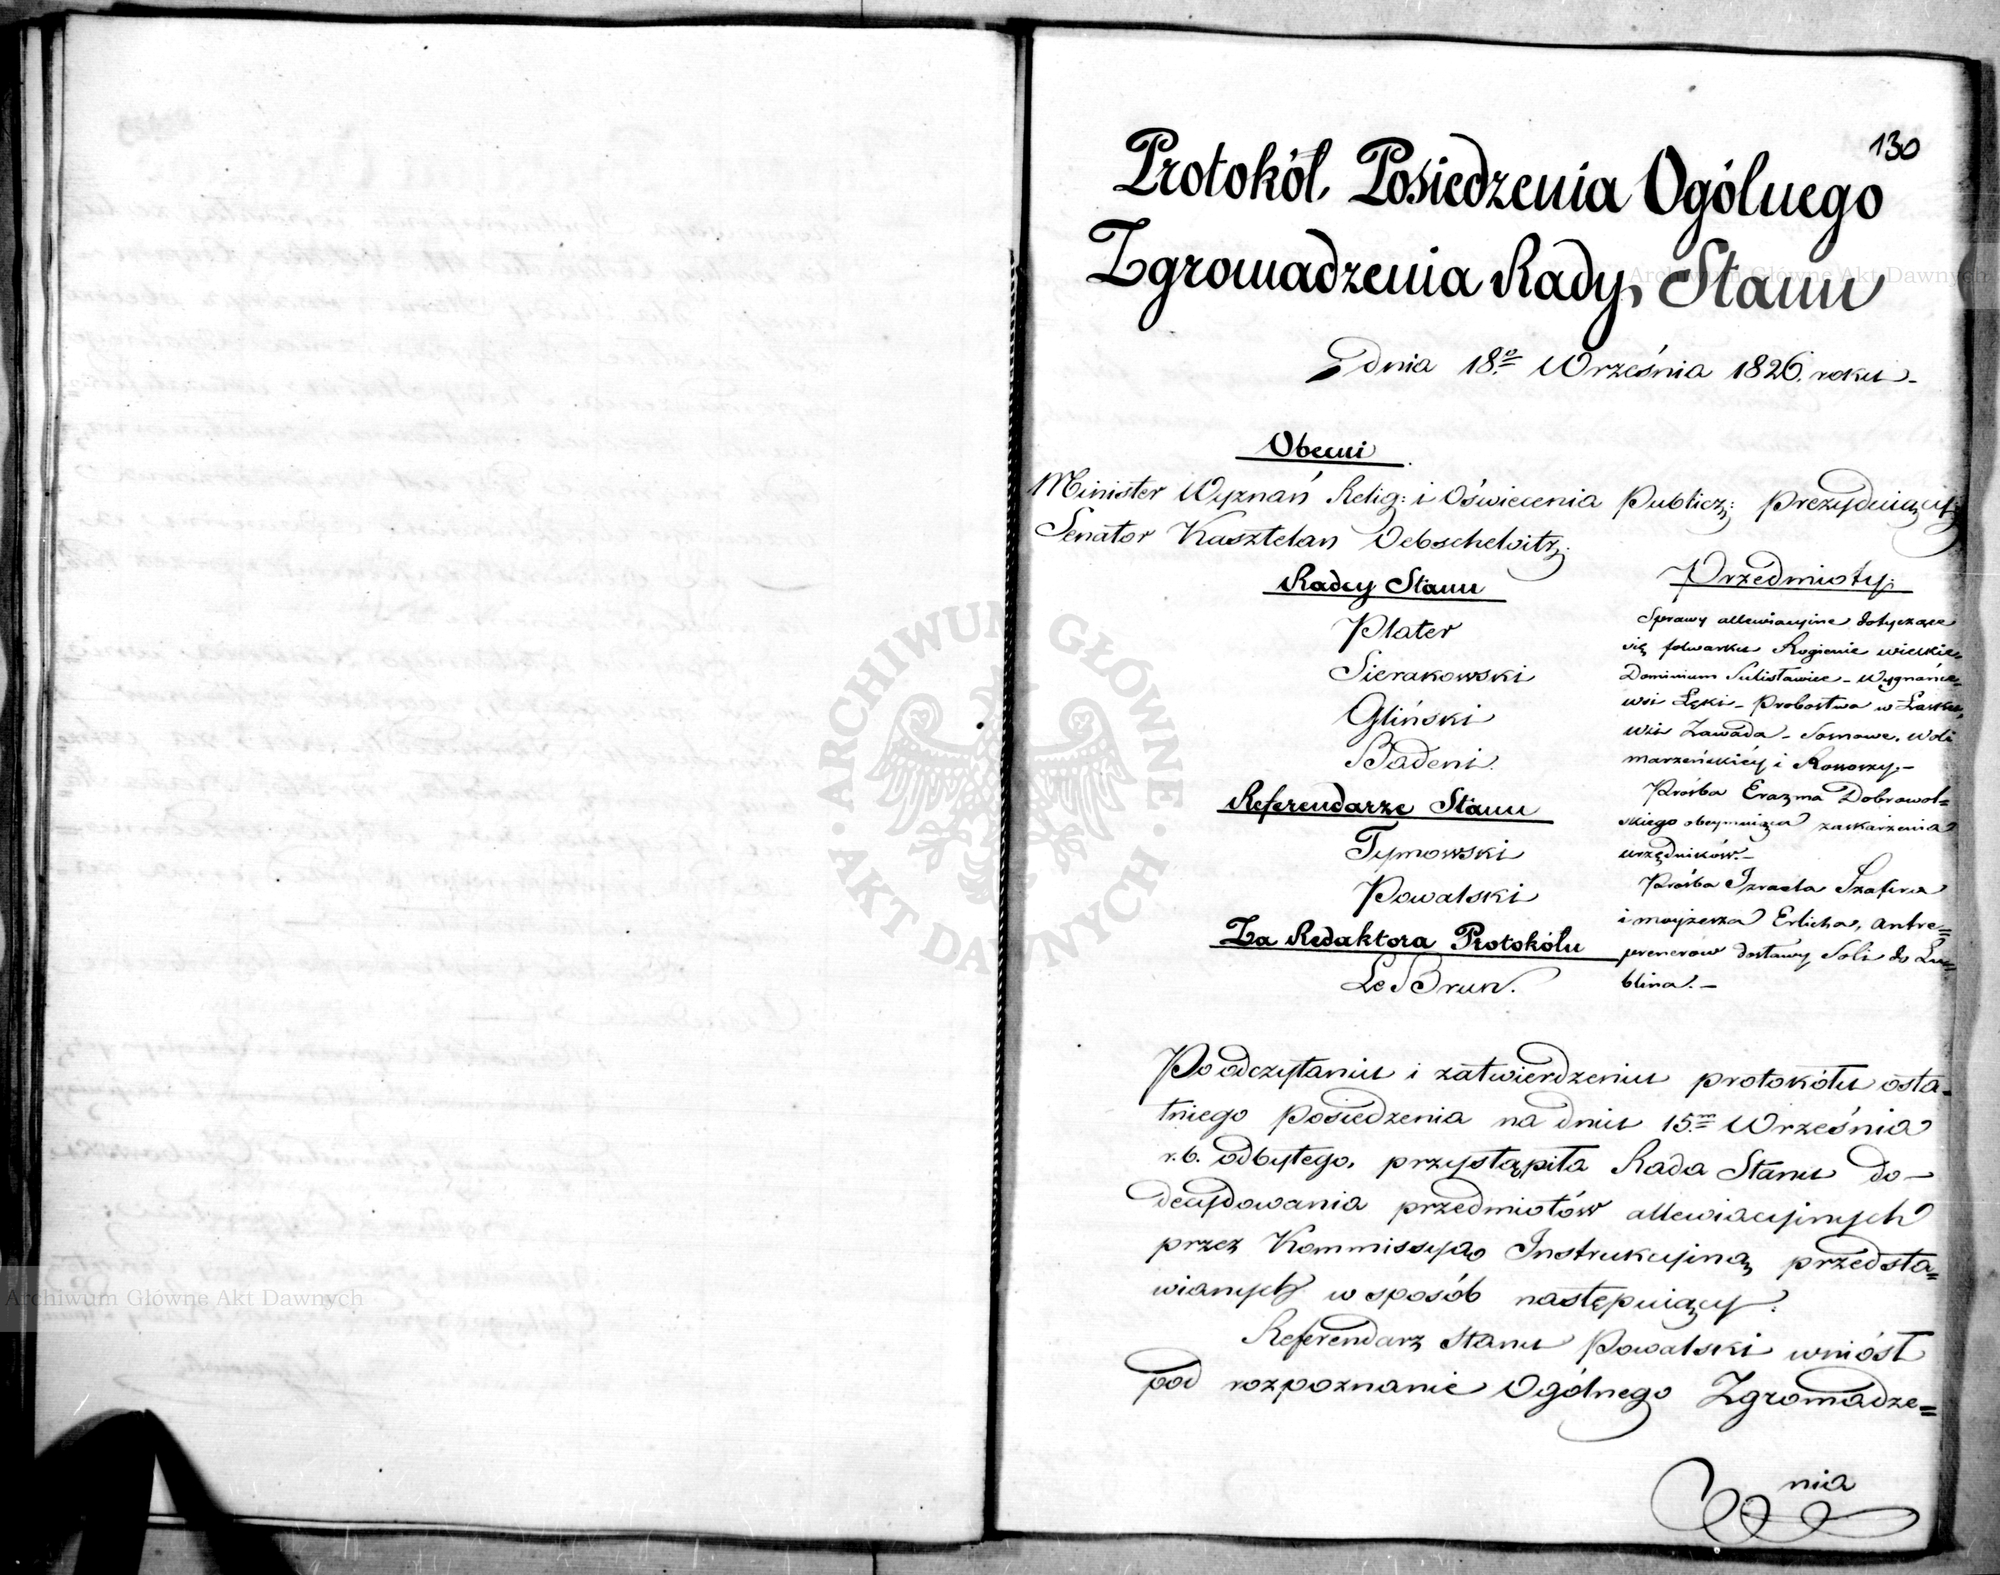 130
Protokół Posiedzenia Ogólnego
Zgromadzenia Rady Stanu
z dnia 18º Września 1826. roku
Obecni
Minister Wyznań Relig: i Oświecenia Publicz: Prezydujący
Senator Kasztelan Debschelvitz.
Radcy Stanu
Plater
Sierakowski
Gliński
Badeni.
Referendarze Stanu
Tymowski
Powalski
Za Redaktora Protokółu
Le Brun.
Przedmioty.
Sprawy allewiacyine dotyczące
się folwarku Rogienie wielkie-
Dominium Sulisławice - Wygnanie-
wsi Łęki - Probostwa w
wsi Zawada - Sosnowe, Woli
marzeńskiéy i Konorzy.-
Prośba Erazma Dobrowol=
skiego obeymuiąca zaskarżenia
urzędników.-
Prośba Izraela Szafira
i moyżesza Erlicha, antre=
prenerów dostawy Soli do Lu=
blina. -
Po odczytaniu i zatwierdzeniu protokółu osta-
tniego posiedzenia na dniu 15m Września
r. b. odbytego, przystąpiła Rada Stanu do -
decydowania przedmiotów allewiacyinych
przez Kommissyą Instrukcyiną przedsta=
wianych w sposób następuiący.
Referendarz Stanu Powalski wniósł
pod rozpoznanie Ogólnego Zgromadze=
nia
ARCHIWUM GŁÓWNE AKT DAWNYCH
Archiwum Główne Akt Dawnych
Archiwum Główne Akt Dawnych